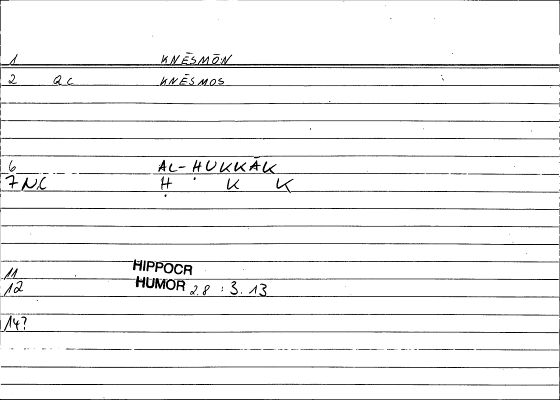 1 KNĒSMŌN
2 QC KNĒSMOS
6 AL-ḤUKKĀK
7 NC Ḥ K K
11 HIPPOCR
12 HUMOR 2.8 : 3.13
14?